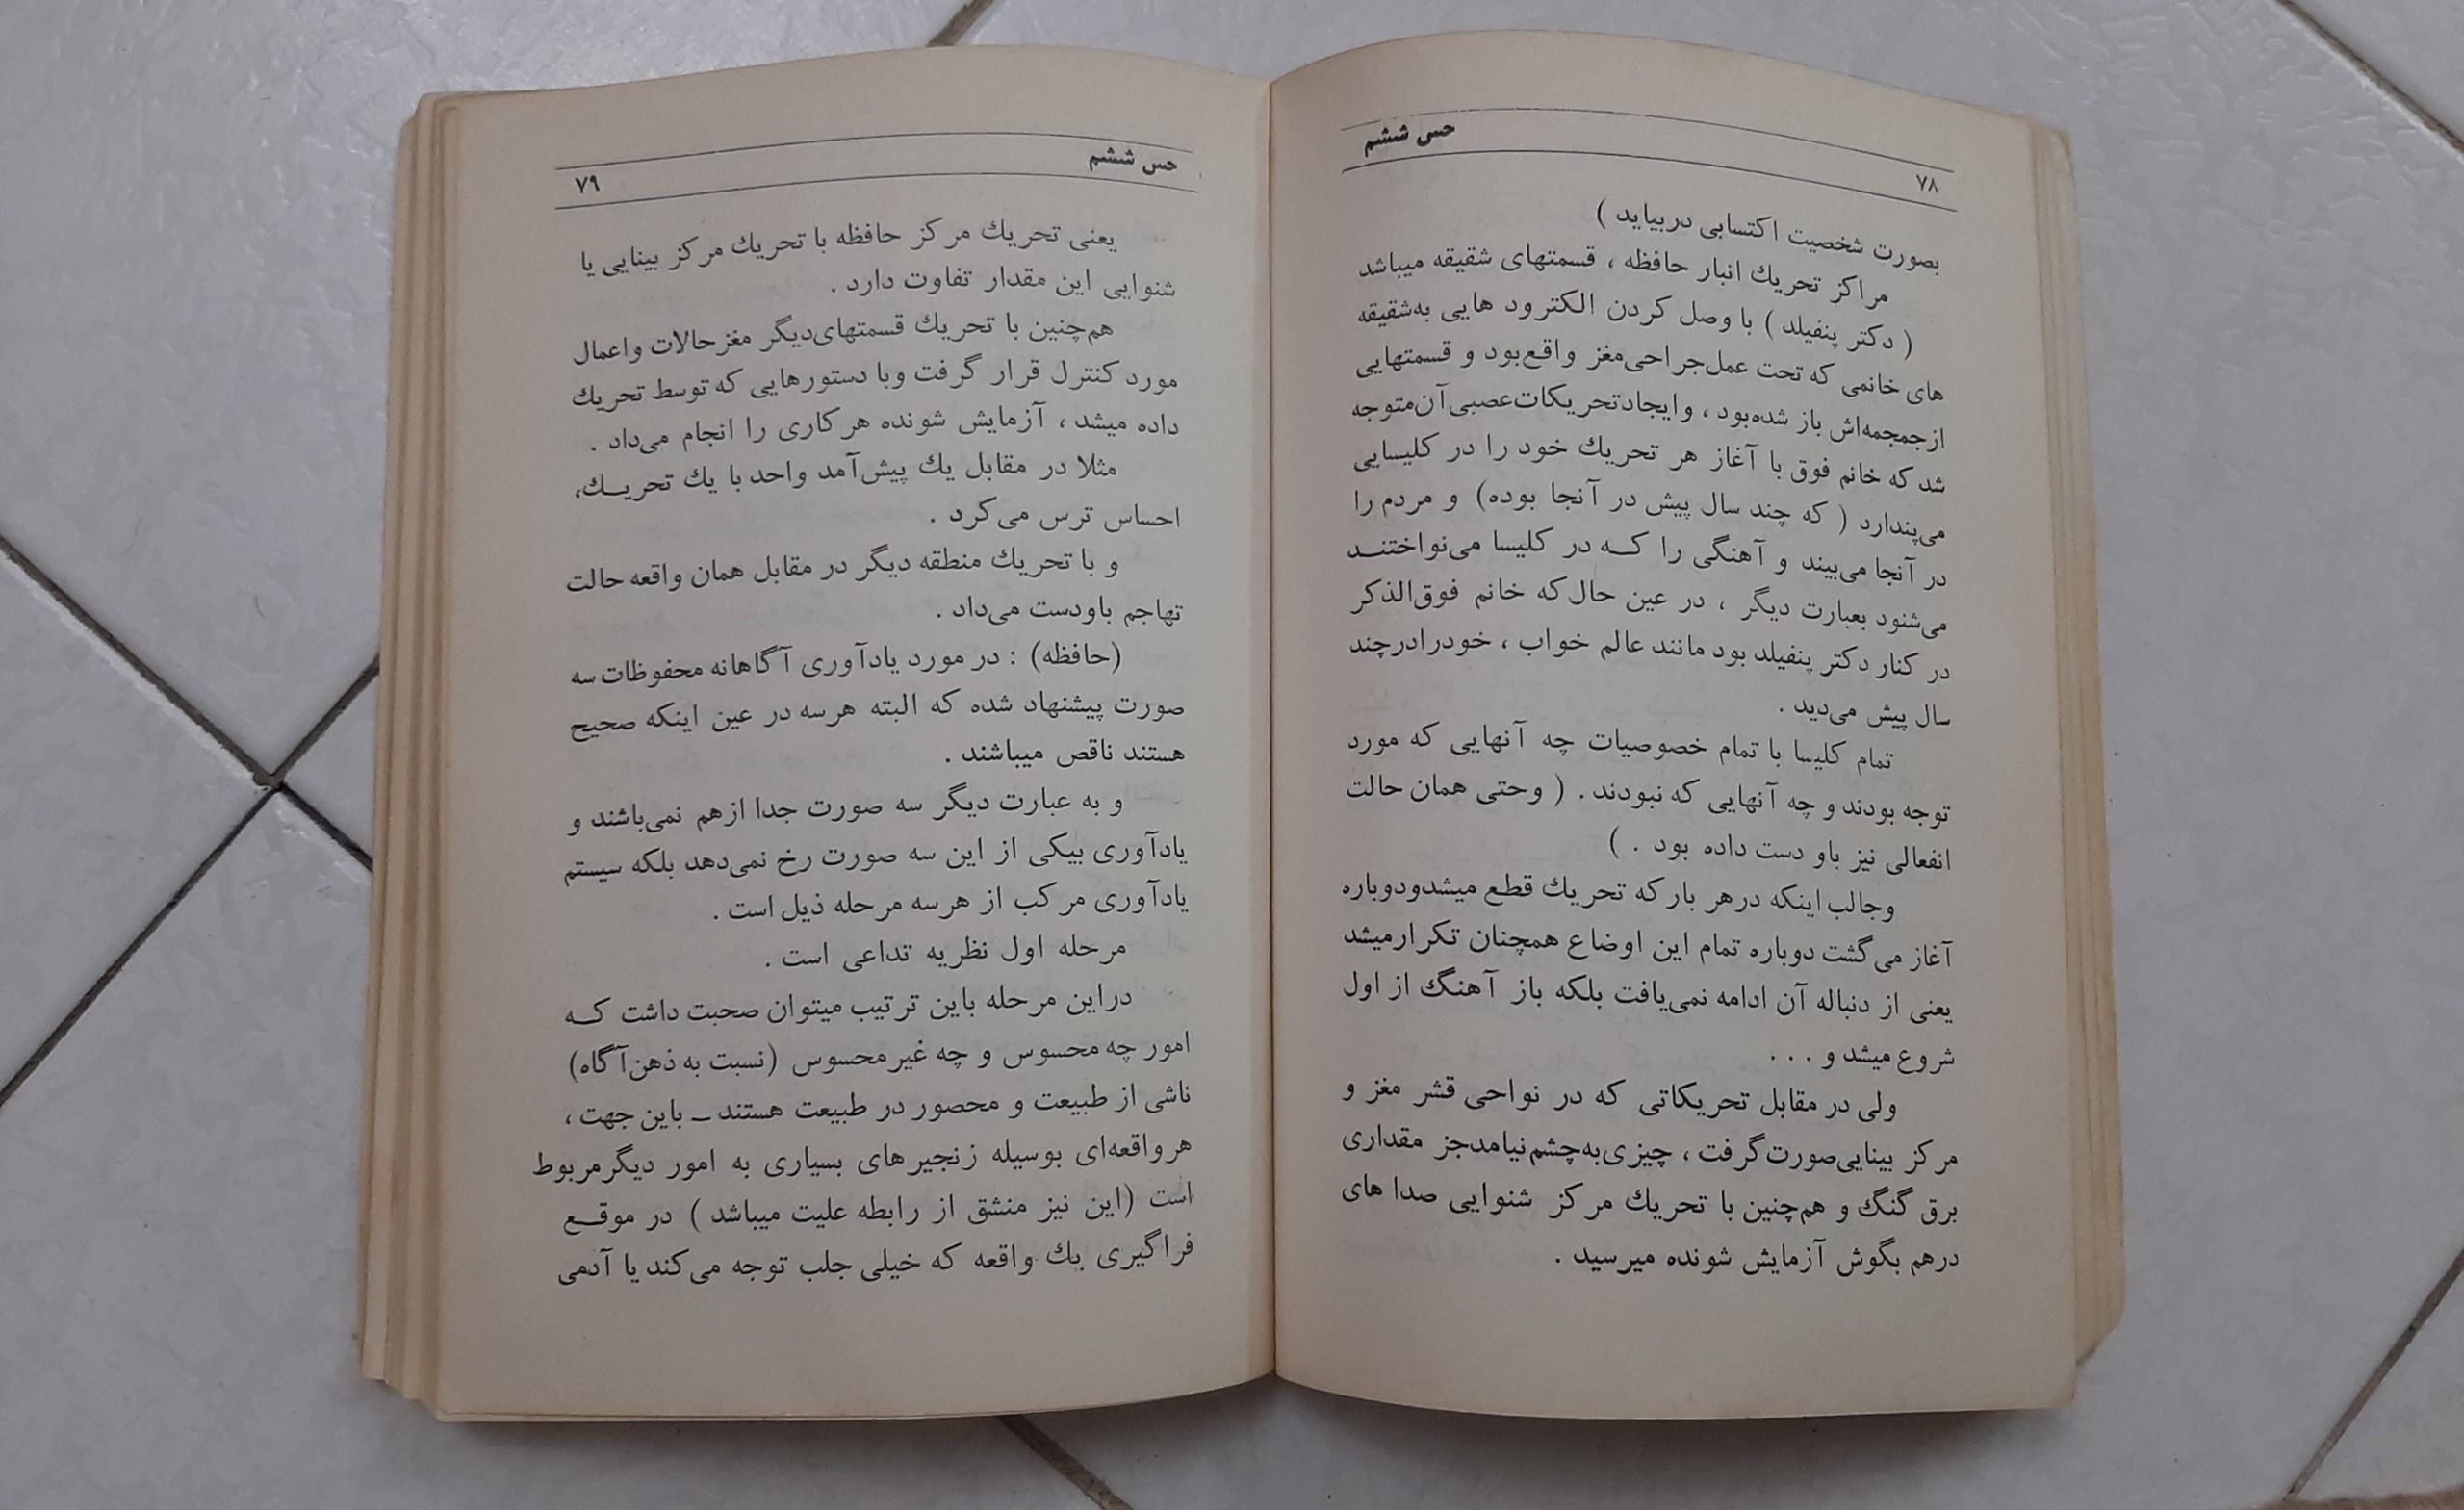 ۷۸
حس ششم
بصورت شخصیت اکتسابی دربیاید )
مراکز تحریك انبار حافظه ، قسمتهای شقیقه میباشد
( دکتر پنفیلد ) با وصل کردن الکترود هایی به‌شقیقه
های خانمی که تحت عمل‌جراحی‌مغز واقع‌بود و قسمتهایی
ازجمجمه‌اش باز شده‌بود ، وایجادتحریکات‌عصبی‌آن‌متوجه
شد که خانم فوق با آغاز هر تحریك خود را در کلیسایی
می‌پندارد ( که چند سال پیش در آنجا بوده) و مردم را
در آنجا می‌بیند و آهنگی را کـه در کلیسا می‌نواختنـد
می‌شنود بعبارت دیگر ، در عین حال‌که خانم فوق‌الذکر
در کنار دکتر پنفیلد بود مانند عالم خواب ، خودرادرچند
سال پیش می‌دید .
تمام کلیسا با تمام خصوصیات چه آنهایی که مورد
توجه بودند و چه آنهایی که نبودند . ( وحتی همان حالت
انفعالی نیز باو دست داده بود . )
وجالب اینکه درهر بار که تحریك قطع میشدودوباره
آغاز می‌گشت دوباره تمام این اوضاع همچنان تکرارمیشد
یعنی از دنباله آن ادامه نمی‌یافت بلکه باز آهنگ از اول
شروع میشد و . . .
ولی در مقابل تحریکاتی که در نواحی قشر مغز و
مرکز بینایی‌صورت‌گرفت ، چیزی‌به‌چشم‌نیامدجز مقداری
برق گنگ و هم‌چنین با تحریك مرکز شنوایی صدا های
درهم بگوش آزمایش شونده میرسید .
حس ششم
۷۹
یعنی تحریك مرکز حافظه با تحریك مرکز بینایی یا
شنوایی این مقدار تفاوت دارد .
هم‌چنین با تحریك قسمتهای‌دیگر مغزحالات واعمال
مورد کنترل قرار گرفت وبا دستورهایی که توسط تحریك
داده میشد ، آزمایش شونده هرکاری را انجام می‌داد .
مثلا در مقابل یك پیش‌آمد واحد با یك تحریـك،
احساس ترس می‌کرد .
و با تحریك منطقه دیگر در مقابل همان واقعه حالت
تهاجم باودست می‌داد .
(حافظه) : در مورد یادآوری آگاهانه محفوظات سه
صورت پیشنهاد شده که البته هرسه در عین اینکه صحیح
هستند ناقص میباشند .
و به عبارت دیگر سه صورت جدا ازهم نمی‌باشند و
یادآوری بیکی از این سه صورت رخ نمی‌دهد بلکه سیستم
یادآوری مرکب از هرسه مرحله ذیل است .
مرحله اول نظریه تداعی است .
دراین مرحله باین ترتیب میتوان صحبت داشت کـه
امور چه محسوس و چه غیرمحسوس (نسبت به ذهن‌آگاه)
ناشی از طبیعت و محصور در طبیعت هستند ـ باین جهت ،
هرواقعه‌ای بوسیله زنجیرهای بسیاری به امور دیگرمربوط
است (این نیز منشق از رابطه علیت میباشد ) در موقـع
فراگیری یك واقعه که خیلی جلب توجه می‌کند یا آدمی